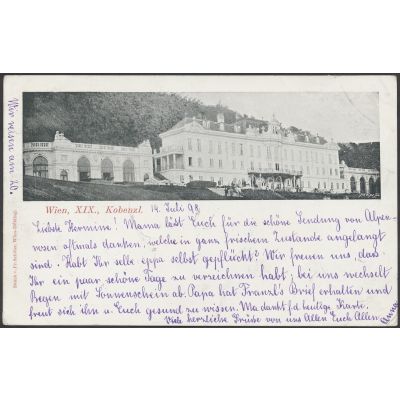 Wien, XIX., Kobenzl.
14. Juli 98
Liebste Hermine! Mama läßt Euch für die schöne Sendung von Alpen-
rosen oftmals danken, welche in ganz frischem Zustande angelangt
sind. Habt Ihr selbe eppa selbst gepflückt? Wir freuen uns, dass
Ihr ein paar schöne Tage zu verzeichnen habt, bei uns wechselt
Regen mit Sonnenschein ab. Papa hat Franzl's Brief erhalten und
freut sich ihn u. Euch gesund zu wissen. Ma dankt f. d. heutige Karte.
Viele herzliche Grüße von uns Allen Euch Allen.
Anna
Wir reisen am 20.